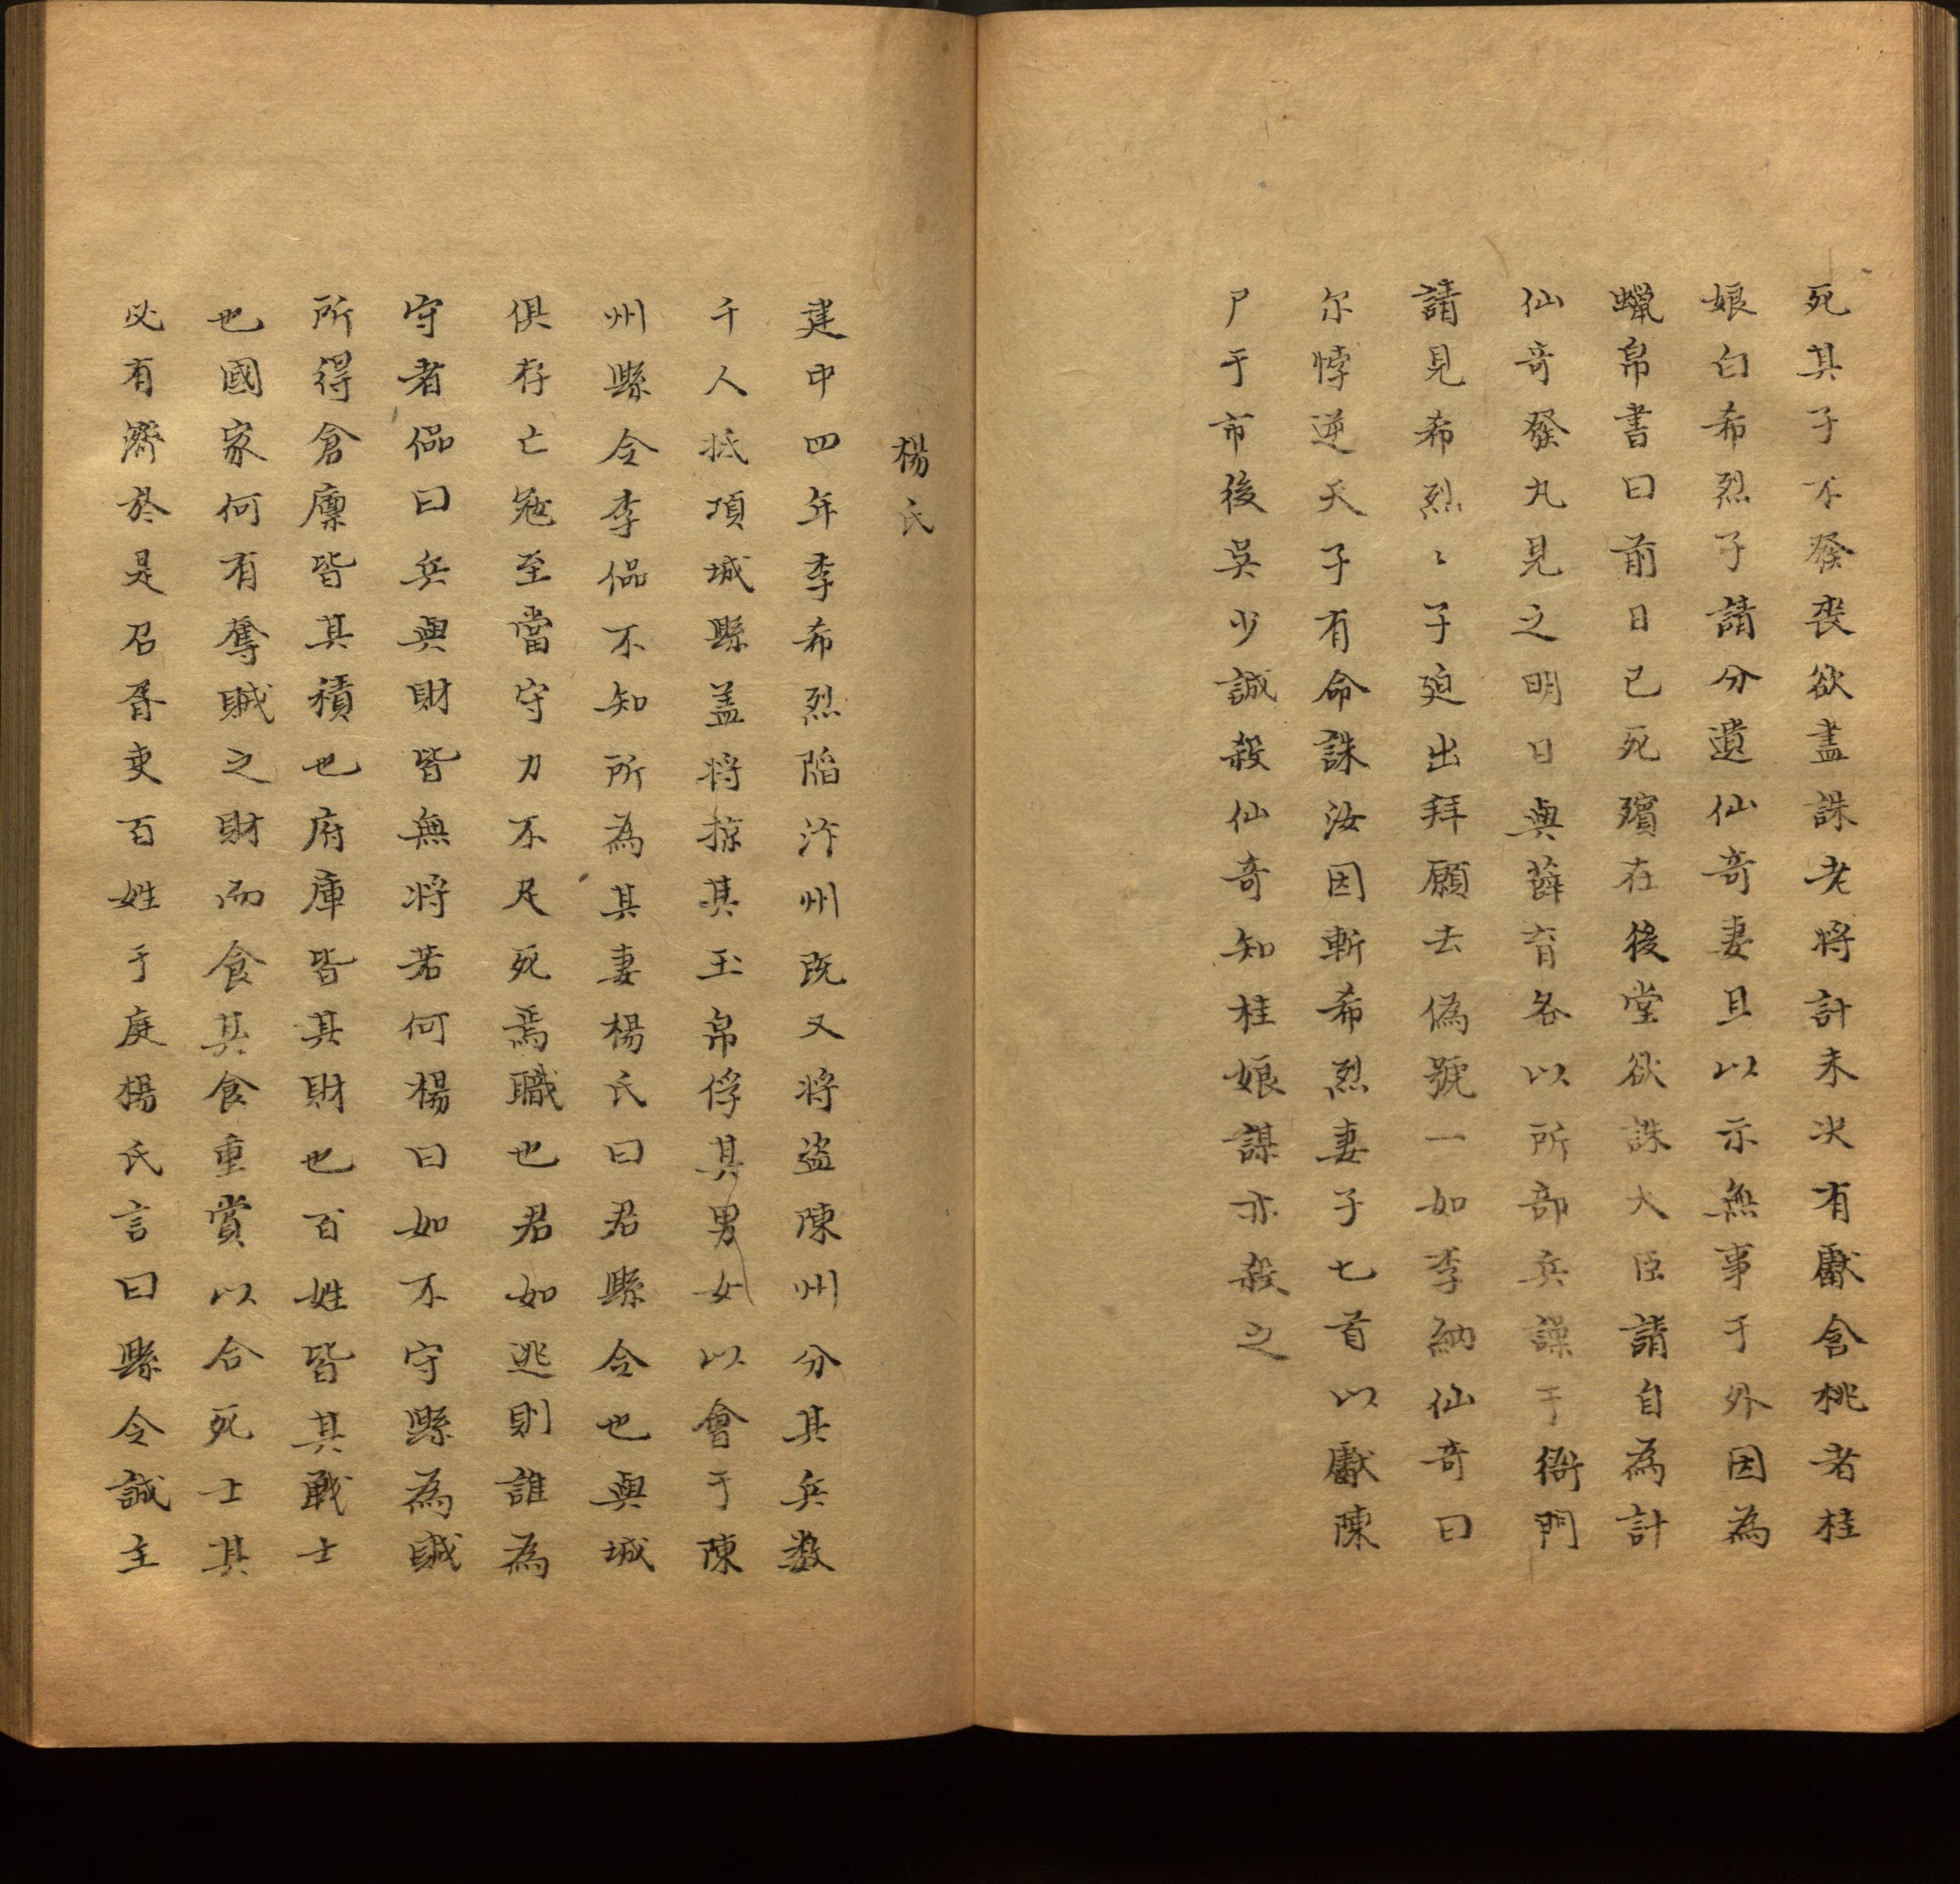 死其子不發丧欲盡誅老将計未决有獻含桃者桂
娘白希烈子請分遺仙奇妻且以示無事于外因為
蠟帛書曰前日已死殯在後堂欲誅大臣請自為計
仙奇發丸見之明日與薛育各以所部兵譟于衙門
請見希烈〻子廹出拜願去偽號一如李納仙奇曰
尔悖逆天子有命誅汝因斬希烈妻子七首以獻陳
尸于市後吳少誠殺仙奇知桂娘謀亦殺之
楊氏
建中四年李希烈陷汴州既又将盗陳州分其兵数
千人抵項城縣盖将掠其玉帛俘其男女以會于陳
州縣令李侃不知所為其妻楊氏曰君縣令也與城
俱存亡冦至當守力不足死焉職也君如逃則誰為
守者侃曰兵與財皆無将若何楊曰如不守縣為賊
所得倉廪皆其積也府庫皆其財也百姓皆其戰士
也國家何有奪賊之財而食其食重賞以合死士其
必有濟於是召胥吏百姓于庭楊氏言曰縣令誠主